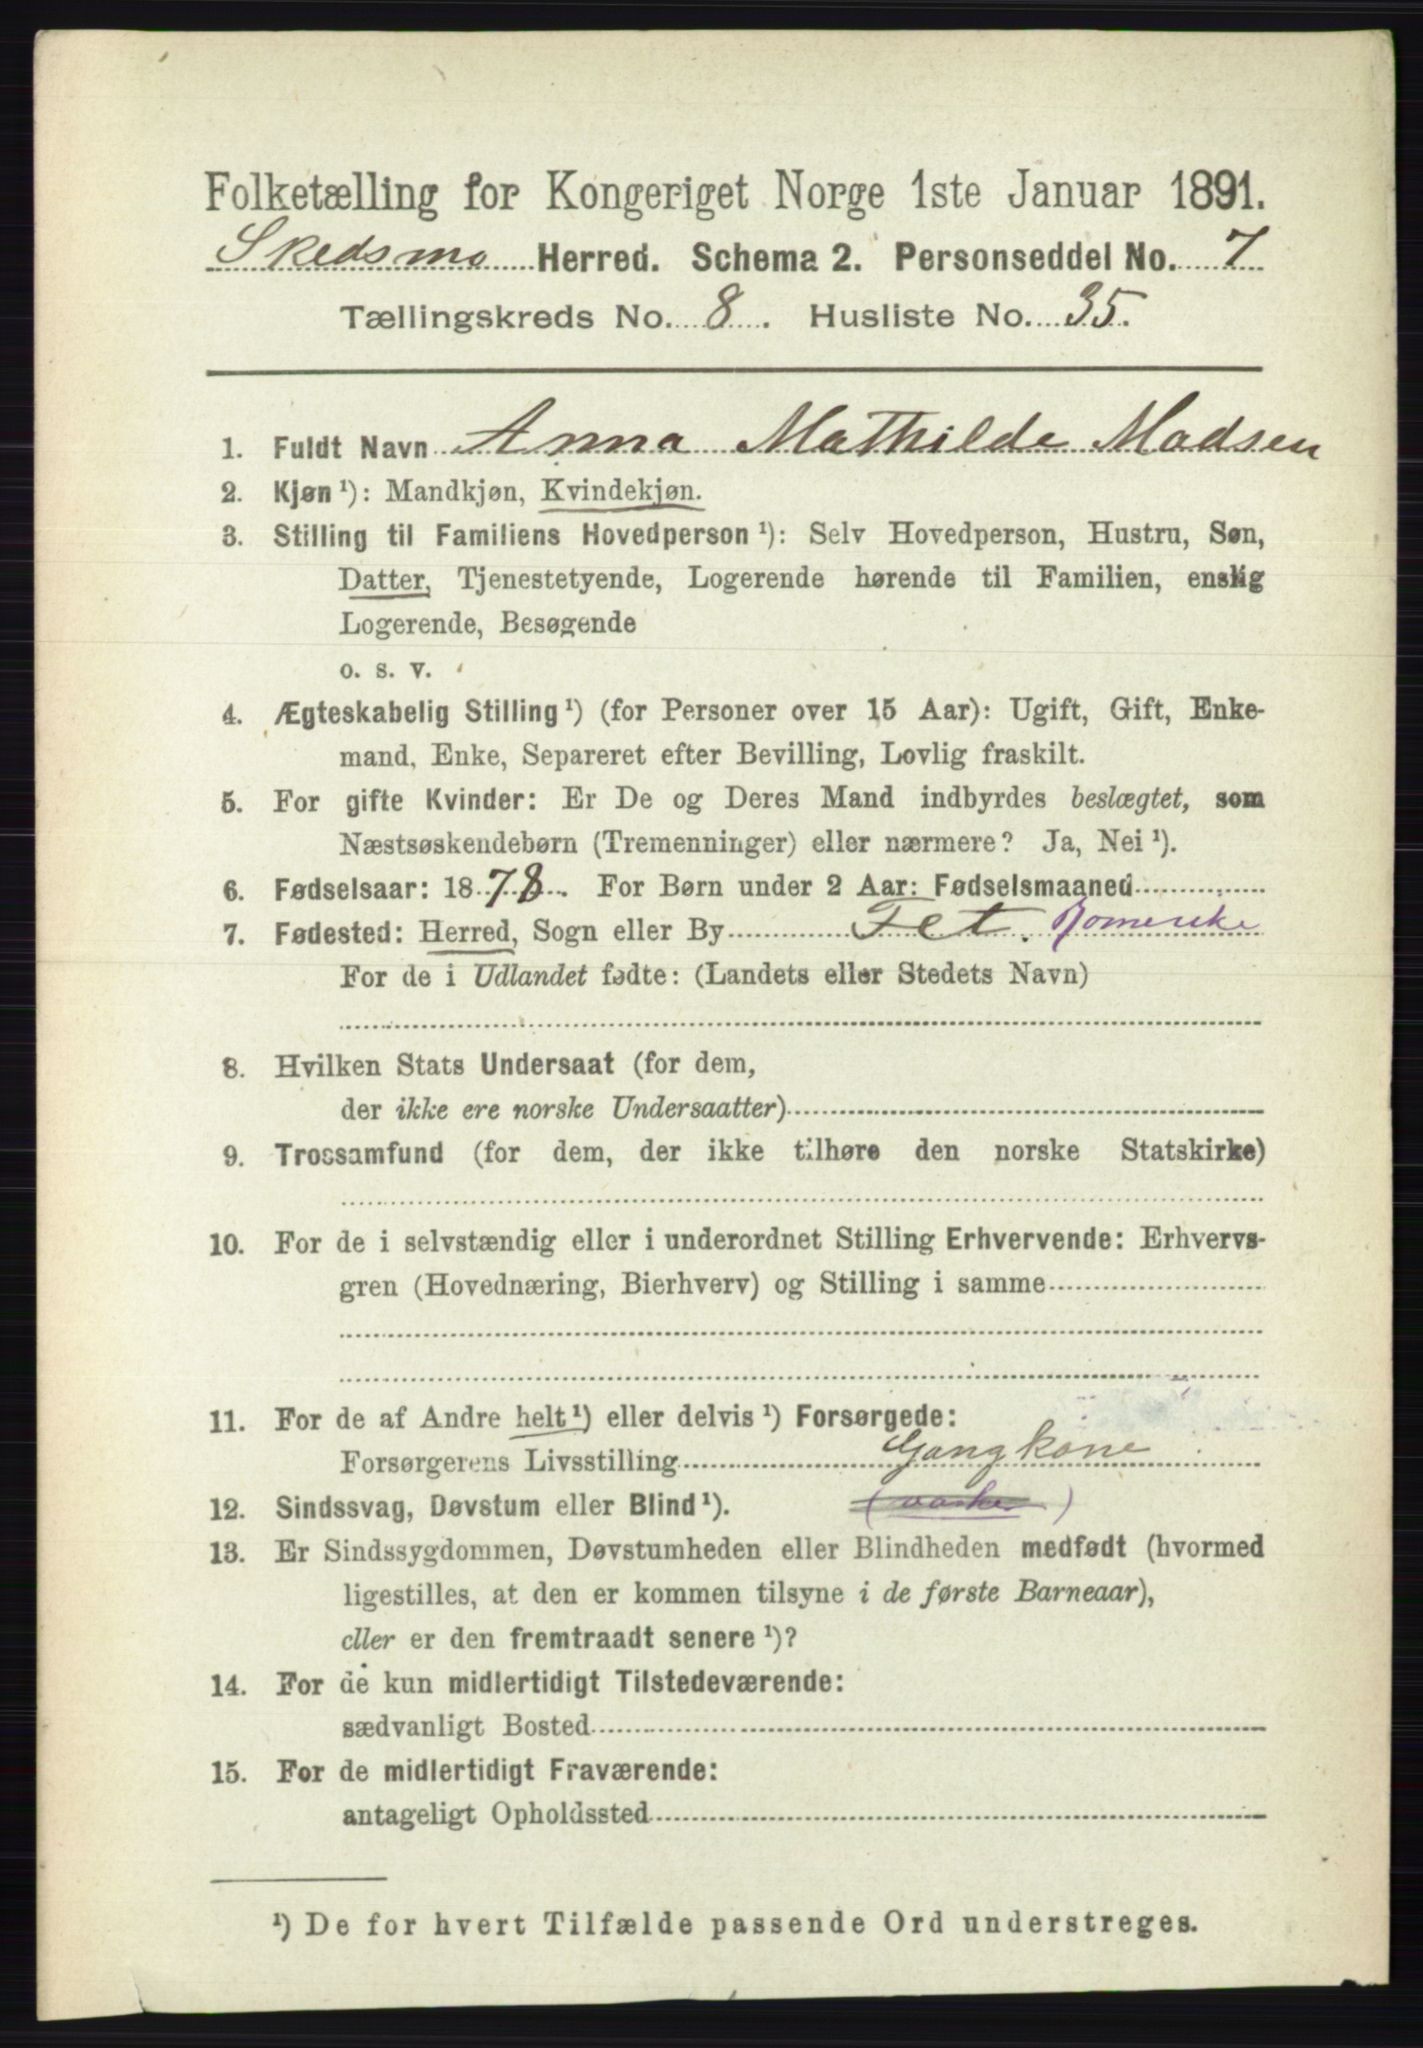 Folketælling for Kongeriget Norge 1ste Januar 1891.
Skedsmo Herred. Schema 2. Personseddel No. 7
Tællingskreds No. 8. Husliste No. 35.
1. Fuldt Navn Anna Mathilde Madsen
2. Kjøn ¹): Mandkjøn, Kvindekjøn.
3. Stilling til Familiens Hovedperson ¹): Selv Hovedperson, Hustru, Søn,
Datter, Tjenestetyende, Logerende hørende til Familien, enslig
Logerende, Besøgende
o. s. v.
4. Ægteskabelig Stilling ¹) (for Personer over 15 Aar): Ugift, Gift, Enke-
mand, Enke, Separeret efter Bevilling, Lovlig fraskilt.
5. For gifte Kvinder: Er De og Deres Mand indbyrdes beslægtet, som
Næstsøskendebørn (Tremenninger) eller nærmere? Ja, Nei ¹).
6. Fødselsaar: 1878. For Børn under 2 Aar: Fødselsmaaned
7. Fødested: Herred, Sogn eller By Fet. Romerike
For de i Udlandet fødte: (Landets eller Stedets Navn)
8. Hvilken Stats Undersaat (for dem,
der ikke ere norske Undersaatter)
9. Trossamfund (for dem, der ikke tilhøre den norske Statskirke)
10. For de i selvstændig eller i underordnet Stilling Erhvervende: Erhvervs-
gren (Hovednæring, Bierhverv) og Stilling i samme
11. For de af Andre helt ¹) eller delvis ¹) Forsørgede:
Forsørgerens Livsstilling Gangkone
12. Sindssvag, Døvstum eller Blind ¹). (vaske)
13. Er Sindssygdommen, Døvstumheden eller Blindheden medfødt (hvormed
ligestilles, at den er kommen tilsyne i de første Barneaar),
eller er den fremtraadt senere ¹)?
14. For de kun midlertidigt Tilstedeværende:
sædvanligt Bosted
15. For de midlertidigt Fraværende:
antageligt Opholdssted
¹) De for hvert Tilfælde passende Ord understreges.